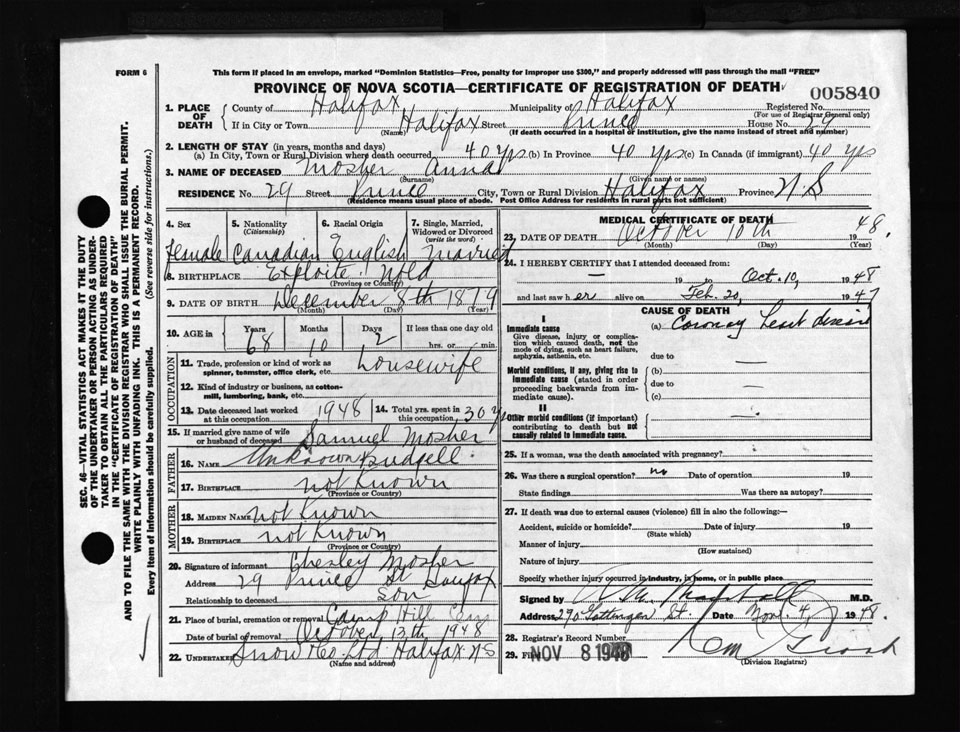 FORM 6
This form if placed in an envelope, marked "Dominion Statistics—Free, penalty for improper use $300," and properly addressed will pass through the mail "FREE"
PROVINCE OF NOVA SCOTIA—CERTIFICATE OF REGISTRATION OF DEATH
005840
1. PLACE OF DEATH
County of Halifax Municipality of Halifax Registered No.
(For use of Registrar General only)
If in City or Town Halifax Street Prince House No. 29
(Name) (If death occurred in a hospital or institution, give the name instead of street and number)
2. LENGTH OF STAY (in years, months and days)
(a) In City, Town or Rural Division where death occurred 40 yrs (b) In Province 40 yrs (c) In Canada (if immigrant) 40 yrs
3. NAME OF DECEASED Mosher Anna
(Surname) (Given name or names)
RESIDENCE No. 29 Street Prince City, Town or Rural Division Halifax Province N S
(Residence means usual place of abode. Post Office Address for residents in rural parts not sufficient)
4. Sex Female
5. Nationality (Citizenship) Canadian
6. Racial Origin English
7. Single, Married, Widowed or Divorced (write the word) Married
8. BIRTHPLACE Exploits Nfld
(Province or Country)
9. DATE OF BIRTH December 8th 1879
(Month) (Day) (Year)
10. AGE in Years 68 Months 10 Days 2 If less than one day old hrs. or min.
OCCUPATION
11. Trade, profession or kind of work as spinner, teamster, office clerk, etc. Housewife
12. Kind of industry or business, as cotton-mill, lumbering, bank, etc.
13. Date deceased last worked at this occupation 1948
14. Total yrs. spent in this occupation 30 yrs
15. If married give name of wife or husband of deceased Samuel Mosher
FATHER
16. NAME Unknown Budgell
17. BIRTHPLACE not Known
(Province or Country)
MOTHER
18. MAIDEN NAME not Known
19. BIRTHPLACE not Known
(Province or Country)
20. Signature of informant Chesley Mosher
Address 29 Prince St Halifax
Relationship to deceased Son
21. Place of burial, cremation or removal Camp Hill Cem
Date of burial or removal October 13th 1948
22. UNDERTAKER Snow &Co Ltd Halifax N S
(Name and address)
MEDICAL CERTIFICATE OF DEATH
23. DATE OF DEATH October 10th 1948.
(Month) (Day) (Year)
24. I HEREBY CERTIFY that I attended deceased from:
— 19 to Oct. 10, 1948
and last saw her alive on Feb. 20, 1947
CAUSE OF DEATH
I
Immediate cause
Give disease, injury or complication which caused death, not the mode of dying, such as heart failure, asphyxia, asthenia, etc.
(a) Coronary heart disease
due to —
Morbid conditions, if any, giving rise to immediate cause (stated in order proceeding backwards from immediate cause).
(b)
due to —
(c)
II
Other morbid conditions (if important) contributing to death but not causally related to immediate cause.
25. If a woman, was the death associated with pregnancy?
26. Was there a surgical operation? no Date of operation 19
State findings Was there an autopsy?
27. If death was due to external causes (violence) fill in also the following:—
Accident, suicide or homicide? Date of injury 19
(State which)
Manner of injury
(How sustained)
Nature of injury
Specify whether injury occurred in industry, in home, or in public place
Signed by Marshall M.D.
Address 290 Gottengen St. Date Nov. 4, 1948.
28. Registrar's Record Number
29. Filed NOV 8 1948
(Division Registrar)
SEC. 46—VITAL STATISTICS ACT MAKES IT THE DUTY
OF THE UNDERTAKER OR PERSON ACTING AS UNDER-
TAKER TO OBTAIN ALL THE PARTICULARS REQUIRED
IN THE "CERTIFICATE OF REGISTRATION OF DEATH"
AND TO FILE THE SAME WITH THE DIVISION REGISTRAR WHO SHALL ISSUE THE BURIAL PERMIT.
WRITE PLAINLY WITH UNFADING INK. THIS IS A PERMANENT RECORD.
Every item of Information should be carefully supplied. (See reverse side for instructions.)